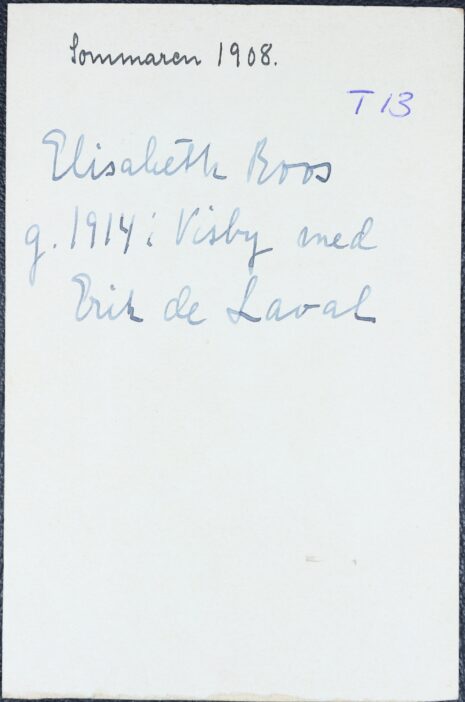 Sommaren 1908.
T 13
Elisabeth Roos
g. 1914 i Visby med
Erik de Laval